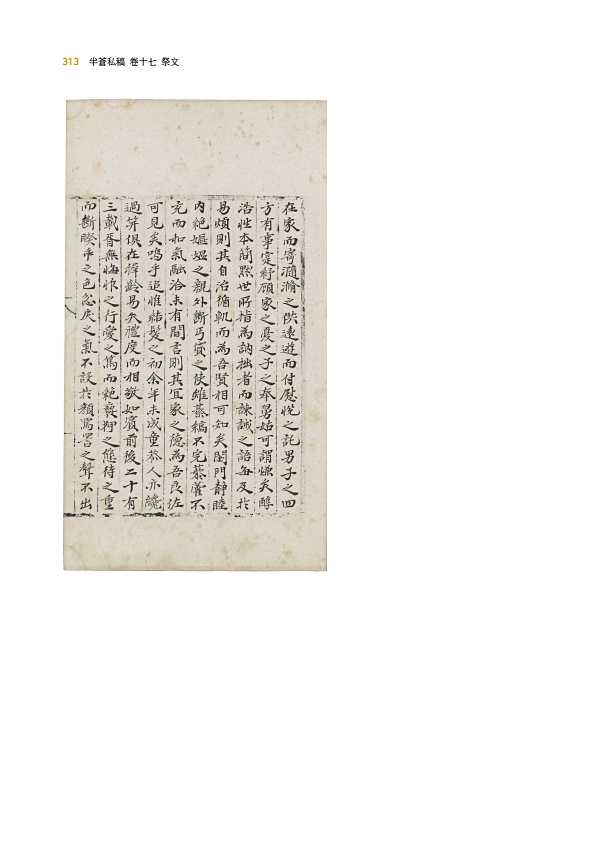 313 半蒼私稿 卷十七 祭文
在家而寄滫瀡之供遠遊而付慰悅之託男子之四
方有事寔紓顧家之憂之子之奉舅姑可謂慊矣醇
浩性本簡默世所指為訥拙者而諫誡之語每及於
易煩則其自治循軌而為吾賢相可知矣閨門靜睦
內絶嫗媼之親外斷丐貸之使雖綦縞不完藜藿不
充而和氣融洽未有間言則其宜家之德為吾良佐
可見矣嗚乎追惟結髮之初余年未成童恭人亦纔
過笄俱在穉齡易失禮度而相敬如賓前後二十有
三載胥無悔怍之行愛之篤而絶褻狎之態待之重
而斷睽乖之色忿戾之氣不設於顏罵詈之聲不出